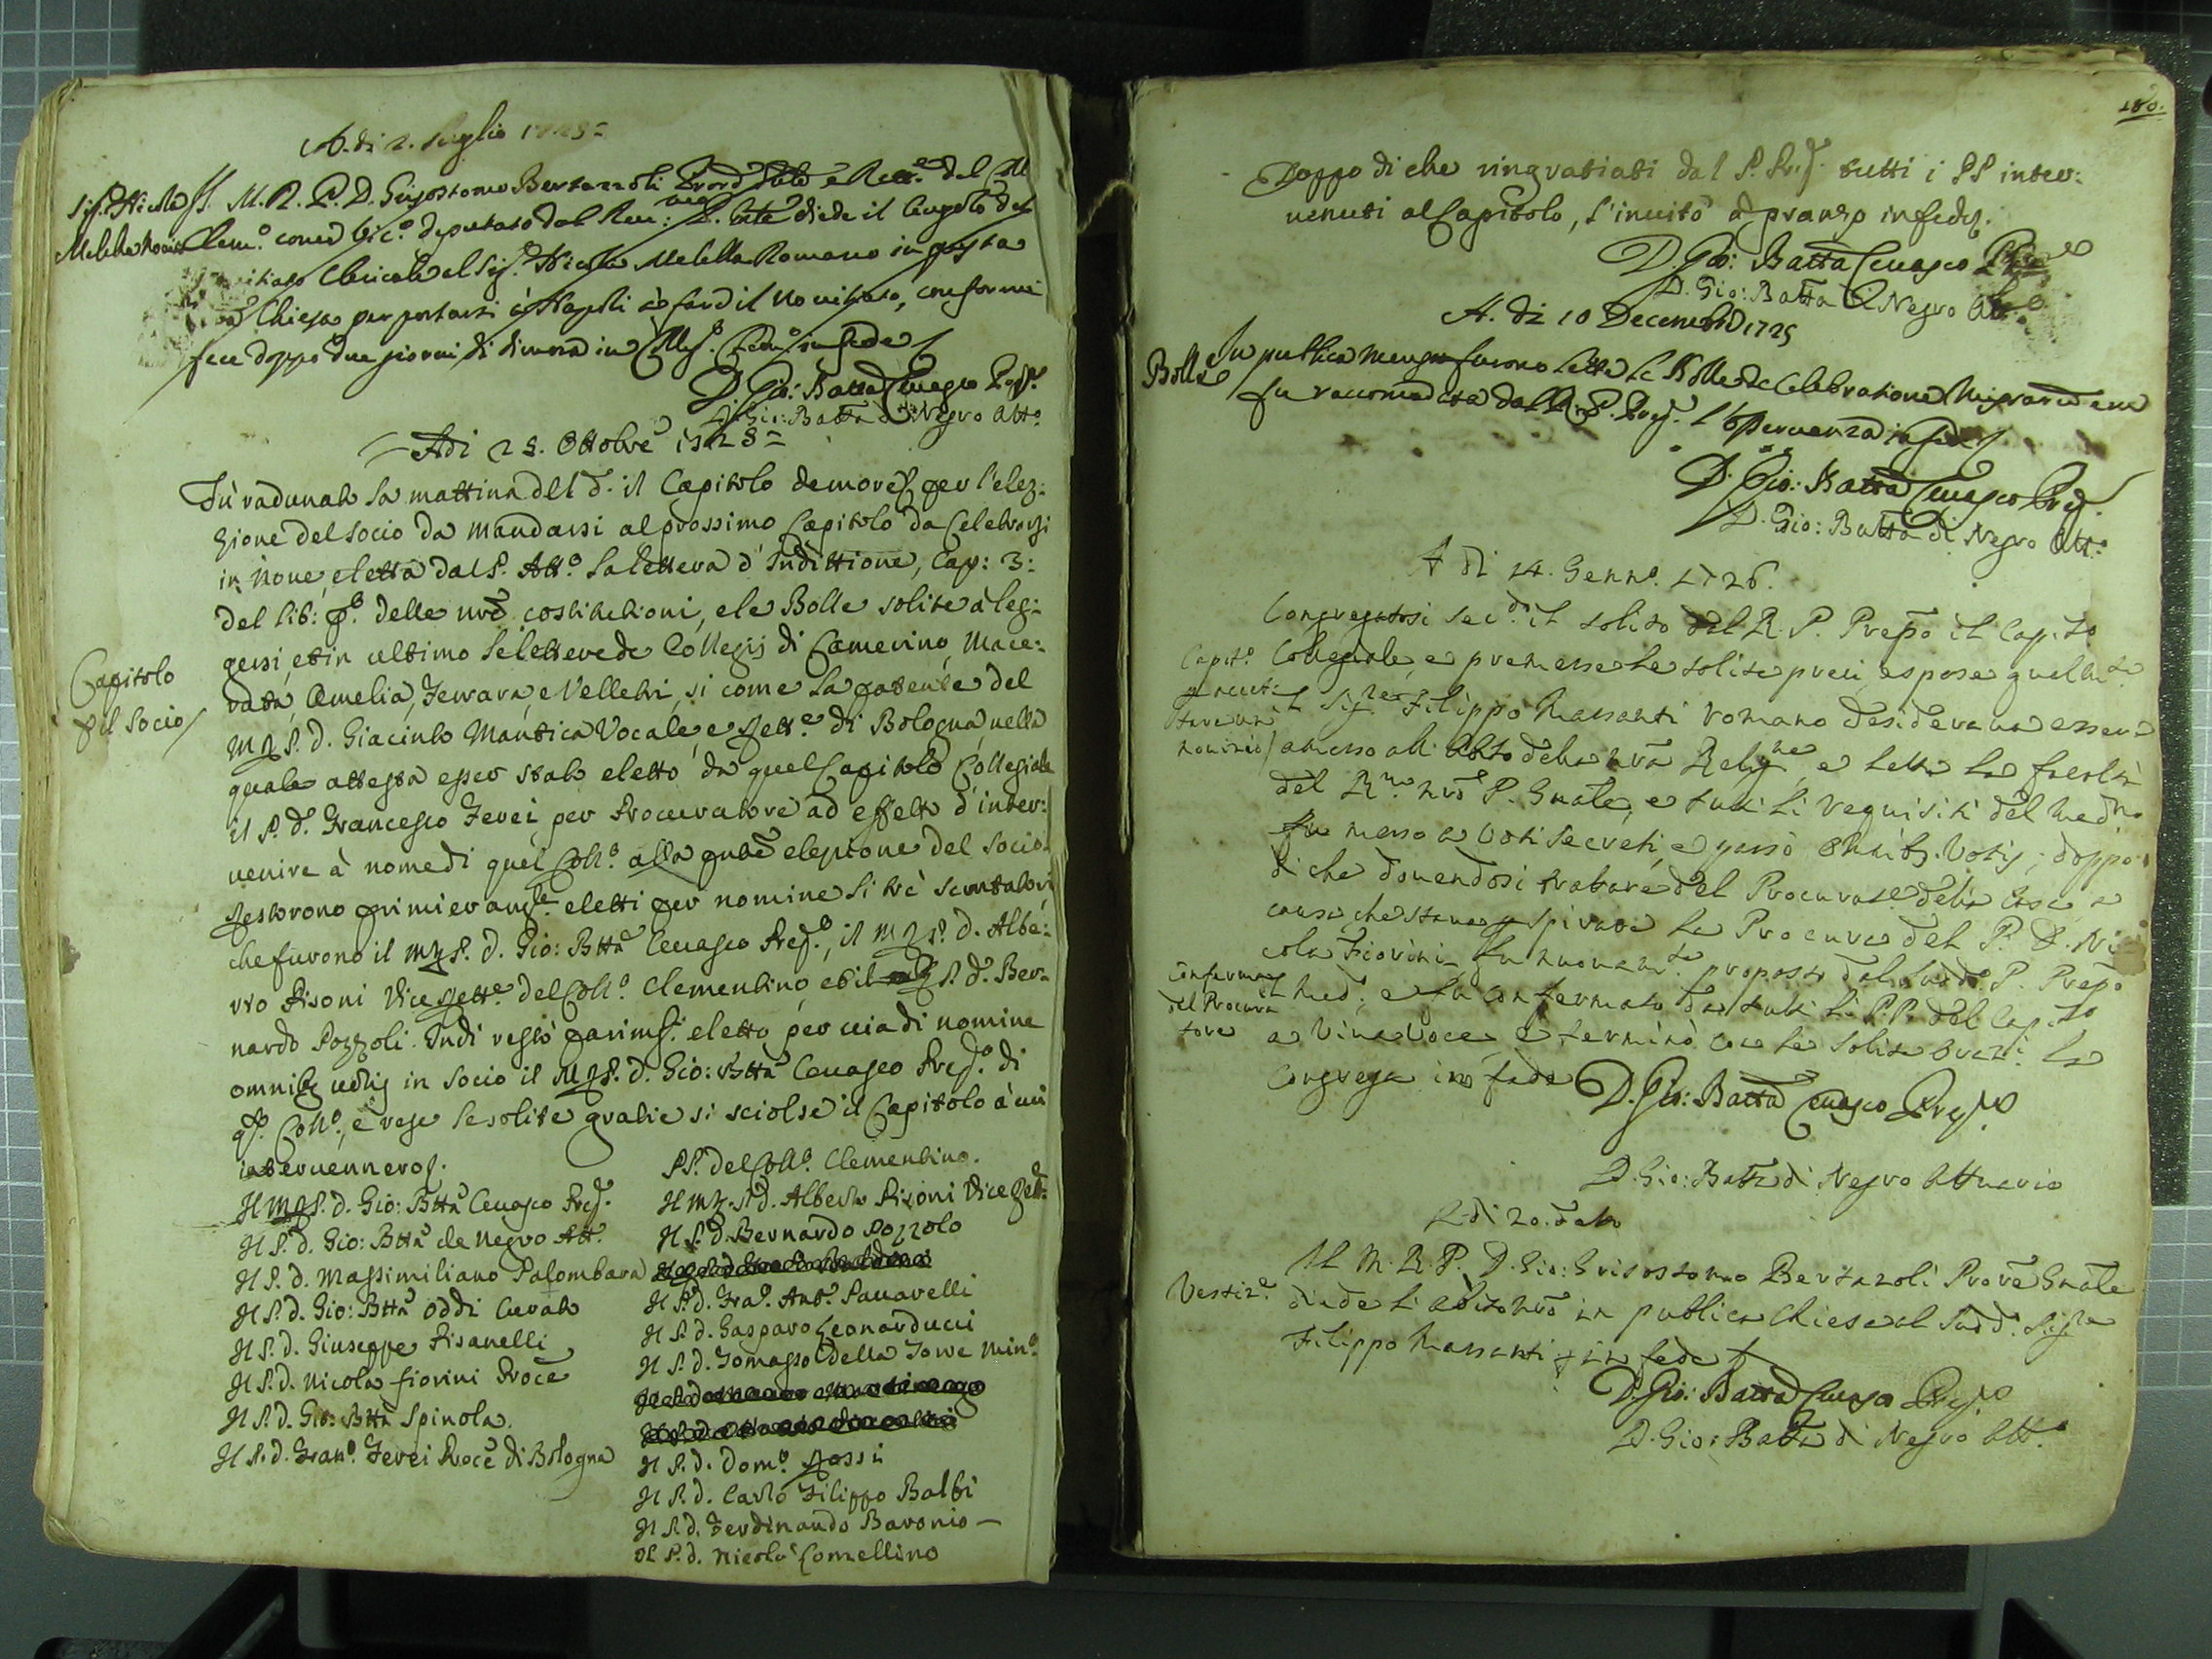 A. di 2. Luglio 1725 =
Sig. Nicola Il M. R. P. D. Grisostomo Bertazzoli
Melella Novizio Clem.º come Vic.º deputato dal Reu: P. diede il Cingolo del
Clericale al Sig. Nicola Melella Romano in questa
Chiesa per portarsi à Napoli à fare il Novitiato, conforme
fece doppo due giorni di dimora in Coll.º in fede
D. Gio: Batta Cevasco Prep.to
D. Gio: Batta di Negro Att.º
Adi 28. Ottobre 1725 =
Fù radunato la mattina del d. il Capitolo de more per l'elez:
zione del Socio da mandarsi al prossimo Capitolo da Celebrarsi
in None, eletta dal P. Att.º la lettera d'Indittione, Cap: 3:
del lib: p.º delle nrē costitutioni, e le Bolle solite à leg:
gersi, et in ultimo le lettere de Collegij di Camerino, Mace:
rata, Amelia, Ferrara, e Velletri, si come la patente del
M R P. d. Giacinto Mantica Vocale, e Rett.e di Bologna, nella
Capitolo
p il Socio
quale attesta esser stato eletto da quel Capitolo Collegiale
il P. d. Francesco Ferei, per Procuratore ad effetto d'inter:
uenire à nome di quel Coll.º alla elezione del Socio.
Restorono primieram.te eletti per nomine li trè scrutatori
che furono il M R P. d. Gio: Btta Ceuasco Prep.º, il M R P. d. Albe:
rto Pisoni Vice Rett.e del Coll.º Clementino, et il P. d. Ber:
nardo Pozzoli. Indi restò parim.ti eletto per uia di nomine
omnibq uotis in Socio il M R P. d. Gio: Btta Ceuasco Prep.º di
q.º Coll.º, e rese le solite gratie si sciolse il Capitolo à cui
interuennero.
Il M R P. d. Gio: Btta Ceuasco Prep.
Il P. d. Gio: Btta de Negro Att.
Il P. d. Massimiliano Palombara
Il P. d. Gio: Btta Oddi Curato
Il P. d. Giuseppe Pisanelli
Il P. d. Nicola Fiorini Procē
Il P. d. Gio: Btta Spinola.
Il P. d. Fran.º Ferei Procē di Bologna
PP. del Coll.º Clementino.
Il M R. P. d. Alberto Pisoni Vice Rett.
Il P. d. Bernardo Pozzolo
Il P. d. Fra.º Ant.º Sauarelli
Il P. d. Gasparo Leonarducci
Il P. d. Tomasso della Torre Min.º
Il P. d. Dom.º Rossi
Il P. d. Carlo Filippo Balbi
Il P. d. Ferdinando Baronio —
Il P. d. Nicolo Comellino
180.
Doppo di che ringratiati dal P. Prep. tutti i PP inter:
uenuti al Capitolo, l'inuitò à pranzo in fede.
D. Gio: Batta Ceuasco
D. Gio: Batta di Negro Att.º
A. di 10 Decembre 1725
Bolle In publica mensa furono lette le Bolle de Celebratione Missarum
fu raccomadata dal R. P. Prep. l'osseruanza in fede
D. Gio: Batta Ceuasco Prep.
D. Gio: Batta di Negro Att.º
A di 14. Genn.º 1726.
Congregatosi sec.do il solito dal R. P. Prepo il Cap.to
Capit.º Collegiale, e premesse le solite preci, espose qualm.te
p accett: il Sig.re Filippo Massanti romano desideraua essere
tare un
nouizio ameso all' abito della nrā Relig.ne, e letta la facoltà
del R.mo nrō P. Gnāle, e tutti li requisiti del med.mo
fu messo a voti secreti, e passò omnibq. Votis; doppo
di che douendosi trattare del Procurat.e della Casa, a
causa che staua p spirare la Procura del P. D. Ni
cola Fiorini fu nuouam.te proposto dal sud.o P. Prepo
Conferma il med.; e fu confermato da tutti li P.P. del Cap.to
del Procura
tore a Viva Voce, e terminò con le solite oraz.i la
Congrega in fede
D. Gio: Batta Ceuasco Prep.to
D. Gio: Batta di Negro Attuario
A di 20. Feb.o
Vestiz.e Il M. R. P. D. Gio: Grisostomo Bertazoli Prorē Gnāle
diede l'abito nrō in publica Chiesa al sud.º Sig.re
Filippo Massanti in fede
D. Gio: Batta Ceuasco Prep.to
D. Gio: Batta di Negro Att.º